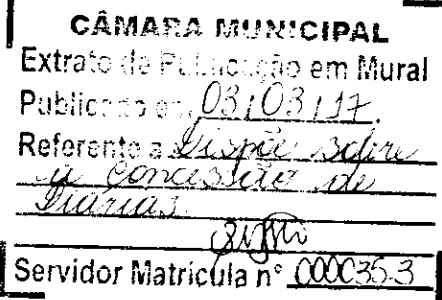 CÂMARA MUNICIPAL
Extrato de Publicação em Mural
Publicado em 03/03/17.
Referente a Dispõe sobre
a concessão de
Diárias.
Servidor Matrícula nº 000035-3